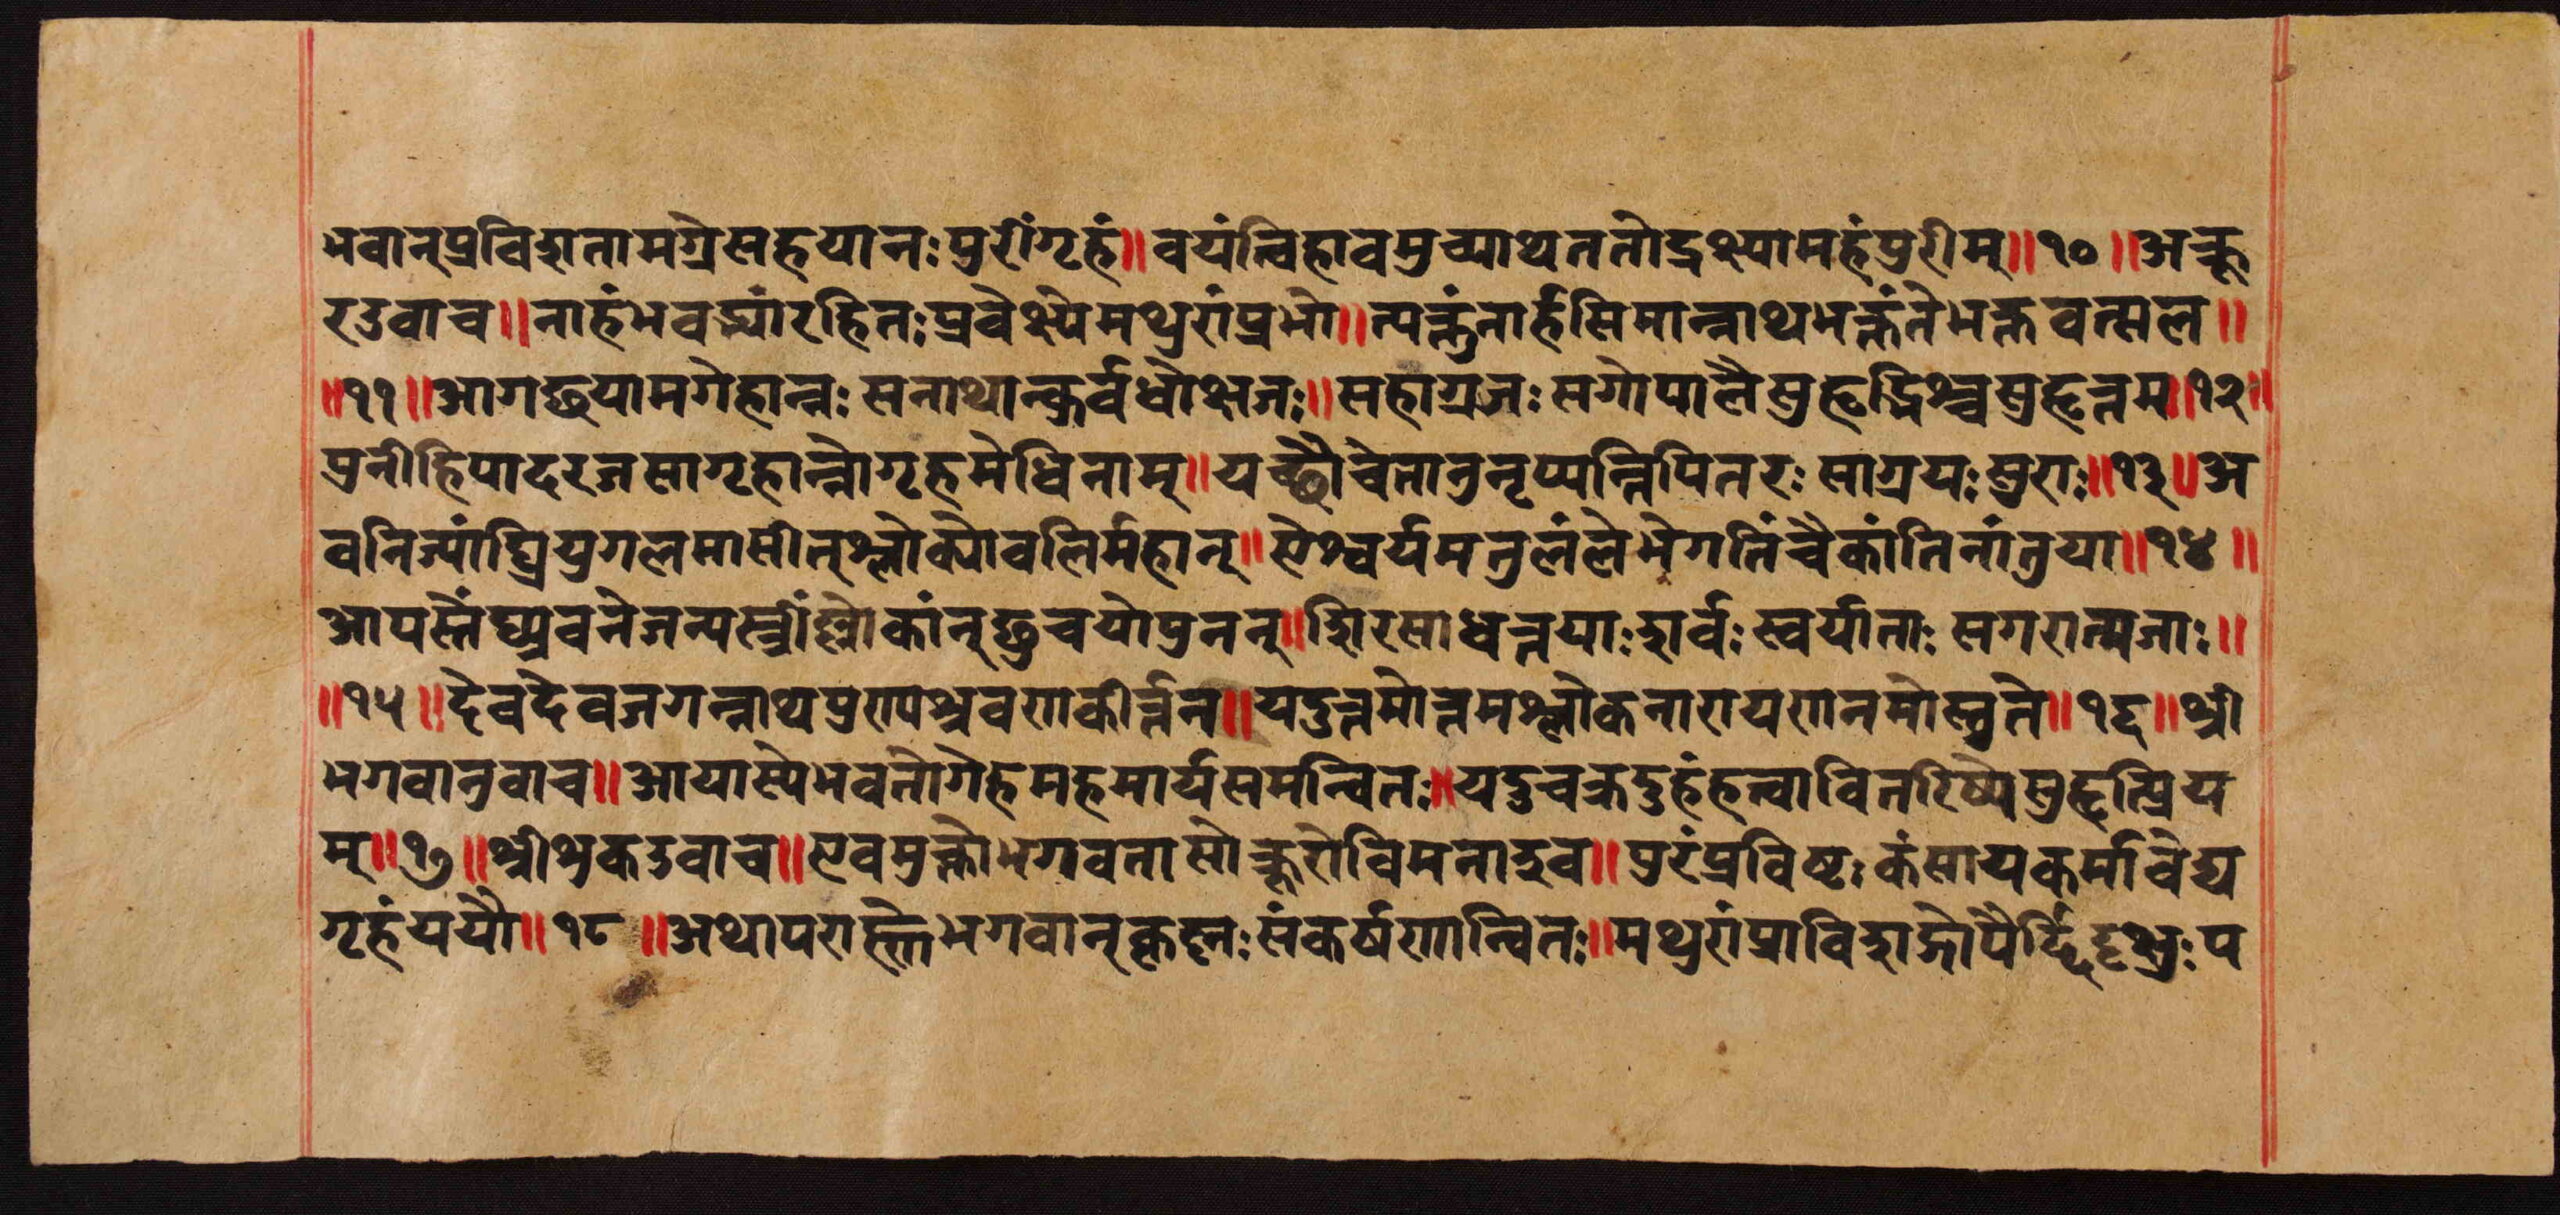 भवान्प्रविशतामग्रेसहयानः पुरींगृहं॥वयंत्विहावमुच्याथततोद्रक्ष्यामहंपुरीम्॥१०॥अक्रू
रउवाच॥नाहंभवद्भ्यांरहितः प्रवेक्ष्येमथुरांप्रभो॥त्यक्तुंनार्हसिमान्नाथभक्तंतेभक्तवत्सल॥
॥११॥आगच्छयामगेहान्नः सनाथान्कुर्वधोक्षजः॥सहाग्रजः सगोपालैसुहृद्भिश्चसुहृत्तम॥१२॥
पुनीहिपादरजसागृहान्नोगृहमेधिनाम्॥यच्छौचेनानुतृप्यन्तिपितरः साग्नयः सुराः॥१३॥अ
वनिज्यांघ्रियुगलमासीत्श्लोक्योवलिर्महान्॥ऐश्वर्यमतुलंलेभेगतिंचैकांतिनांतुया॥१४॥
आपस्तेंघ्र्यवनेजन्यस्त्रींल्लोकांन्छुचयोपुनन्॥शिरसाधत्तयाः शर्वः स्वर्याताः सगरात्मजाः॥
॥१५॥देवदेवजगन्नाथपुण्यश्रवणकीर्त्तन॥यदुत्तमोत्तमश्लोकनारायणनमोस्तुते॥१६॥श्री
भगवानुवाच॥आयास्येभवतोगेहमहमार्यसमन्वितः॥यदुचक्रद्रुहंहत्वावितरिष्येसुहृत्प्रिय
म्॥१७॥श्रीशुकउवाच॥एवमुक्तोभगवतासोक्रूरोविमनाइव॥पुरंप्रविष्टः कंसायकर्मावेद्य
गृहंययौ॥१८॥अथापराह्णेभगवान्कृष्णः संकर्षणान्वितः॥मथुरांप्राविशद्गोपैर्द्दिदृक्षुः प